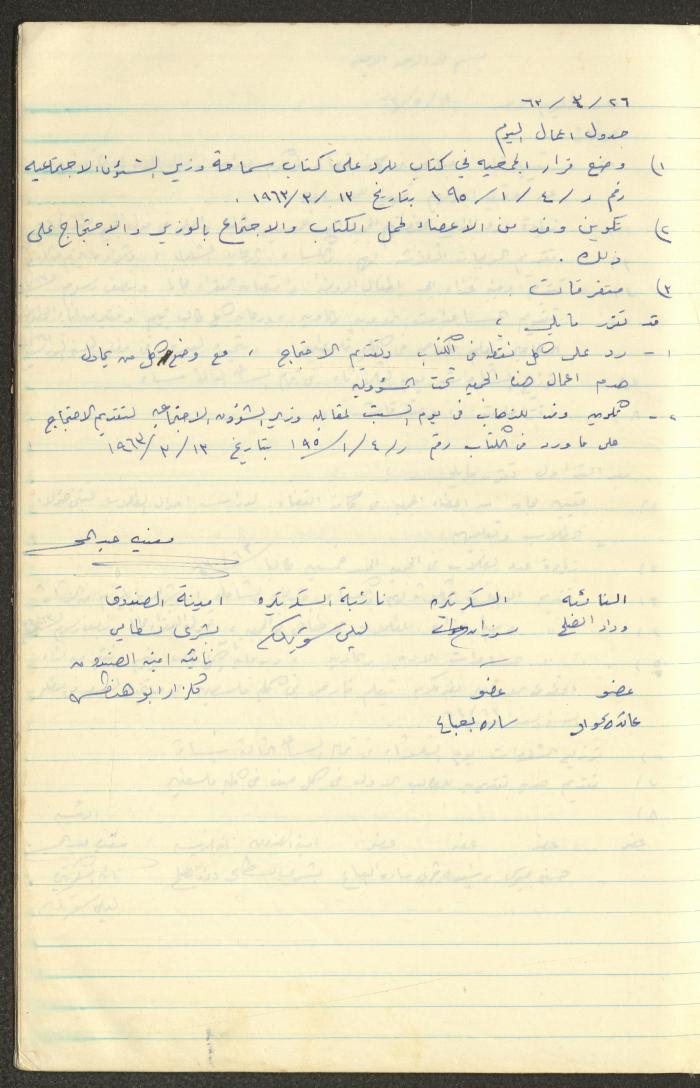 ٢٦ / ٣ / ٦٣
جدول اعمال اليوم
١) وضع قرار الجمعيه في كتاب للرد على كتاب سماحة وزير الشئون الاجتماعيه
رقم ر / ٤ / ١ / ١٩٥ بتاريخ ١٣ / ٣ / ١٩٦٣ .
٢) تكوين وفد من الاعضاء لحمل الكتاب والاجتماع بالوزير والاحتجاج على
ذلك .
٣) متفرقات
قد تقرر ما يلي ؛
١ - رد على كل نقطه في الكتاب وتقديم الاحتجاج ، مع وضع كل من يحاول
هدم اعمال هذه الجمعيه تحت المسؤولية
٢ - تكوين وفد للذهاب في يوم السبت لمقابلة وزير الشؤون الاجتماعيه لتقديم الاحتجاج
على ما ورد في الكتاب رقم ر / ٤ / ١ / ١٩٥ بتاريخ ١٣ / ٣ / ١٩٦٣
النائبه السكرتيره نائبة السكرتيره امينة الصندوق
وداد سوزان ليلى بشرى بسطامي
نائبه امينه الصندوق
عضو عضو گلزار ابو
عائده ساره بعباع